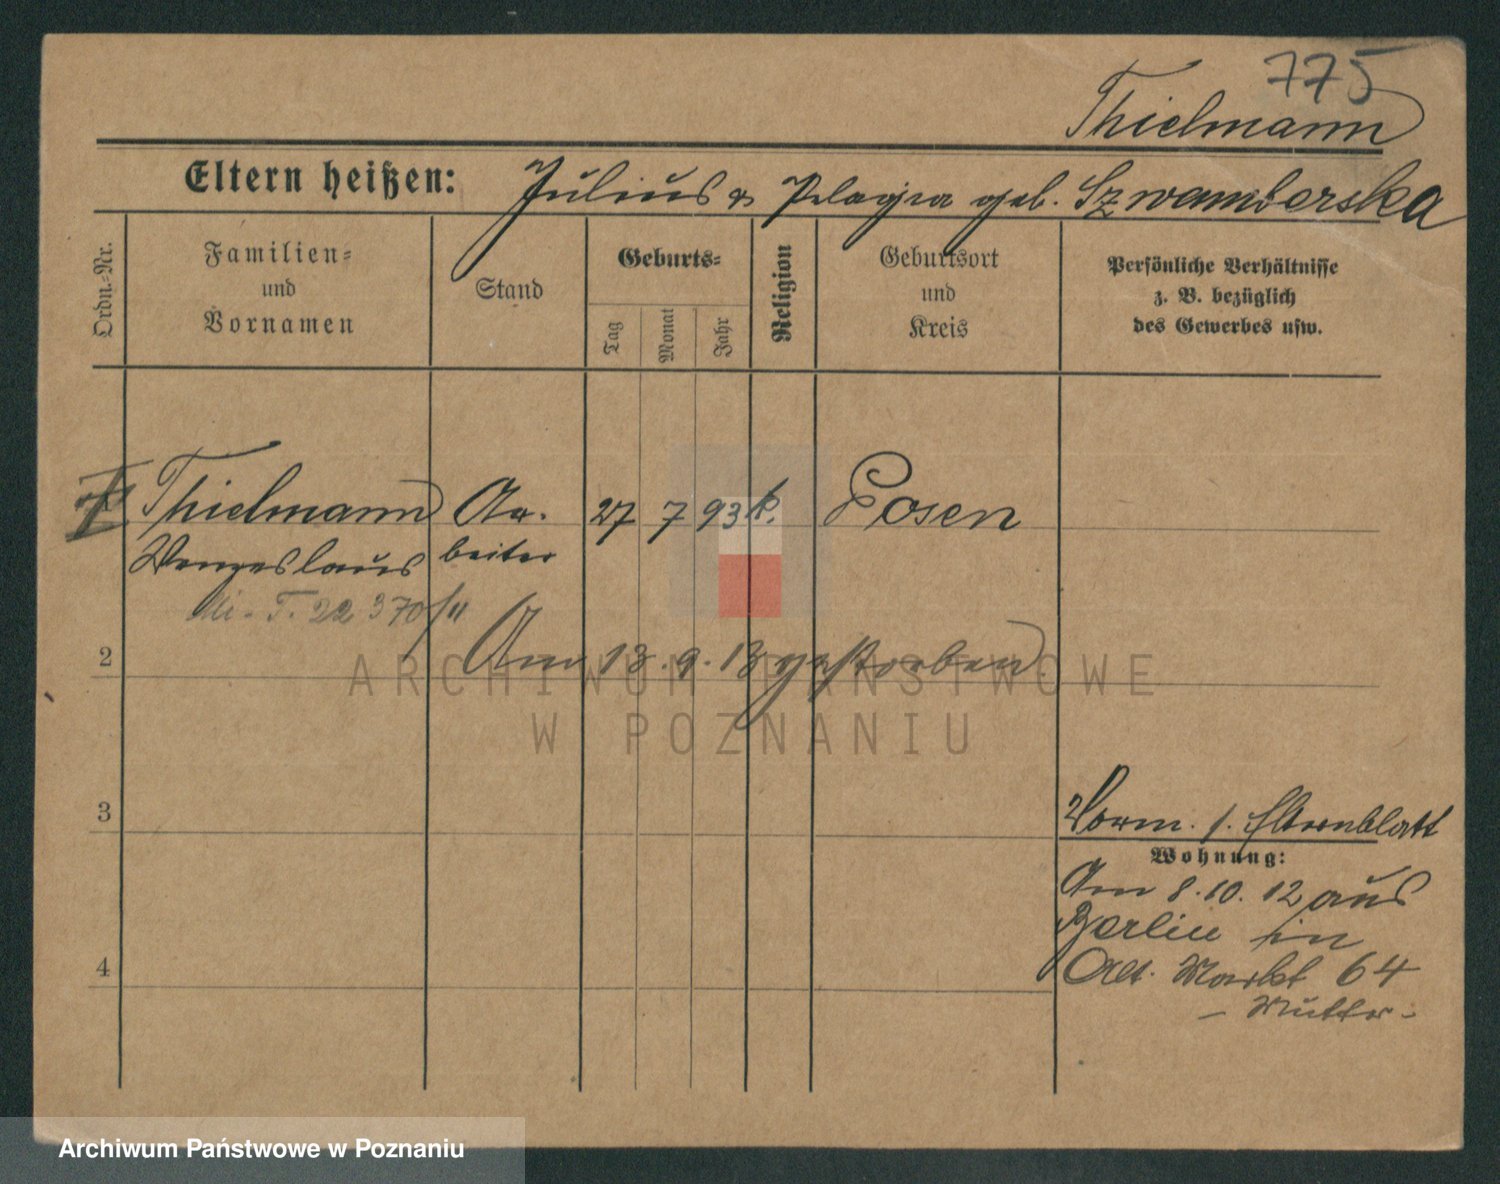 775
Thielmann
Eltern heißen: Julius & Pelagia geb. Szwamborska
Ordn.-Nr.
Familien-
und
Vornamen
Stand
Geburts-
Tag
Monat
Jahr
Religion
Geburtsort
und
Kreis
Persönliche Verhältnisse
z. B. bezüglich
des Gewerbes usw.
1 Thielmann Ar- 27 7 93 k. Posen
Wenzeslaus beiter
22 370/11
2 Am 13.9.13 gestorben
3
Vorm. s. Elternblatt
Wohnung:
Am 8.10.12 aus
Berlin in
4 Alt. Markt 64
- Mutter -
ARCHIWUM PAŃSTWOWE
W POZNANIU
Archiwum Państwowe w Poznaniu